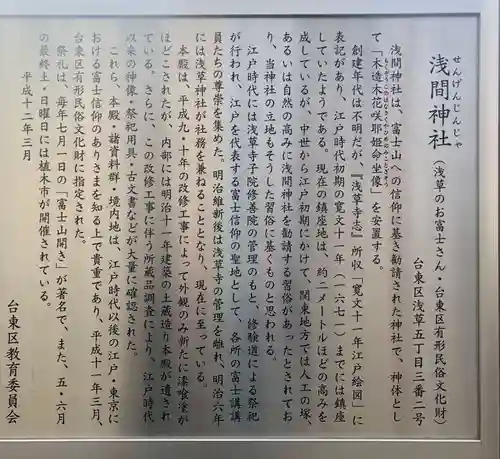 せんげんじんじゃ
浅間神社（浅草のお富士さん・台東区有形民俗文化財）
台東区浅草五丁目三番二号
浅間神社は、富士山への信仰に基き勧請された神社で、神体とし
て「木造木花咲耶姫命坐像」を安置する。
創建年代は不明だが、『浅草寺志』所収「寛文十一年江戸絵図」に
表記があり、江戸時代初期の寛文十一年（一六七一）までには鎮座
していたようである。現在の鎮座地は、約二メートルほどの高みを
成しているが、中世から江戸初期にかけて、関東地方では人工の塚、
あるいは自然の高みに浅間神社を勧請する習俗があったとされてお
り、当神社の立地もそうした習俗に基くものと思われる。
江戸時代には浅草寺子院修善院の管理のもと、修験道による祭祀
が行われ、江戸を代表する富士信仰の聖地として、各所の富士講講
員たちの尊崇を集めた。明治維新後は浅草寺の管理を離れ、明治六年
には浅草神社が社務を兼ねることとなり、現在に至っている。
本殿は、平成九・十年の改修工事によって外観のみ新たに漆喰塗が
ほどこされたが、内部には明治十一年建築の土蔵造り本殿が遺され
ている。さらに、この改修工事に伴う所蔵品調査により、江戸時代
以来の神像・祭祀用具・古文書などが大量に確認された。
これら、本殿・諸資料群・境内地は、江戸時代以後の江戸・東京に
おける富士信仰のありさまを知る上で貴重であり、平成十一年三月、
台東区有形民俗文化財に指定された。
祭礼は、毎年七月一日の「富士山開き」が著名で、また、五・六月
の最終土・日曜日には植木市が開催されている。
平成十二年三月
台東区教育委員会